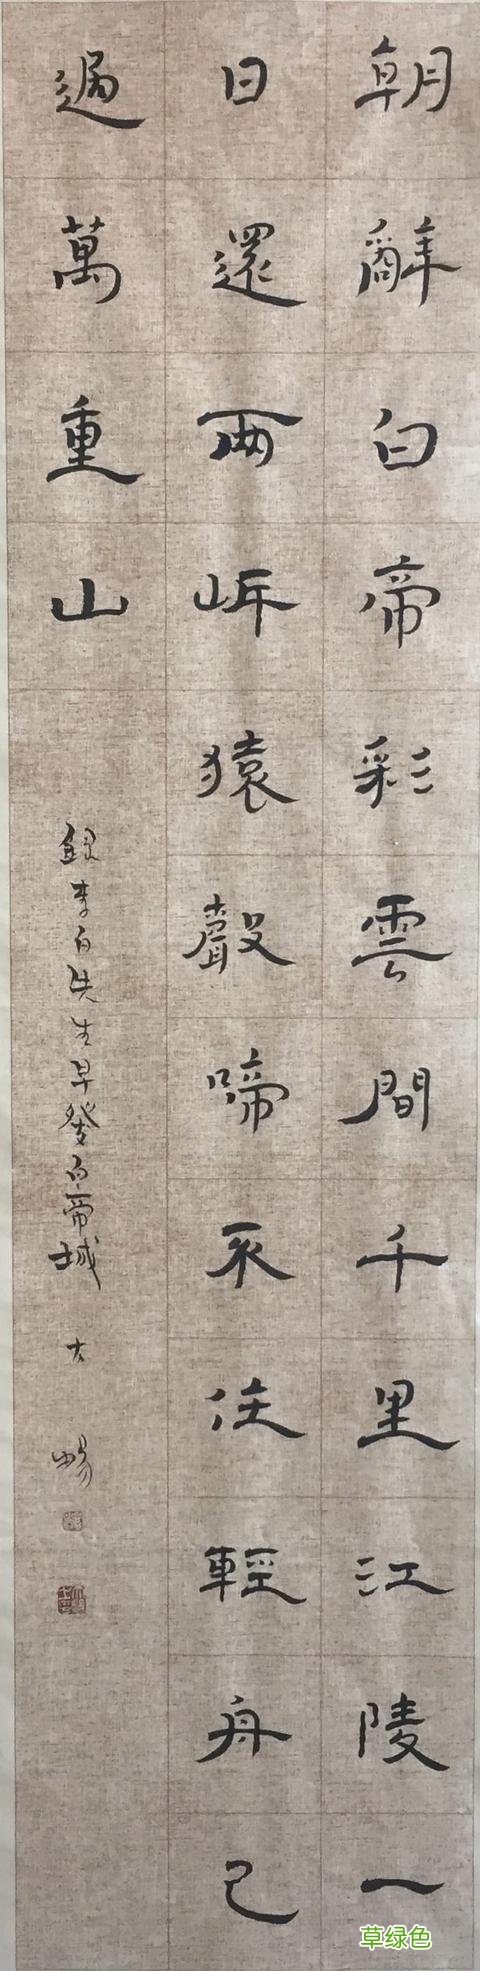 朝辭白帝彩雲間千里江陵一
日還兩岍猿聲啼不住輕舟已
過萬重山
録李白先生早發白帝城 大暢
草绿色